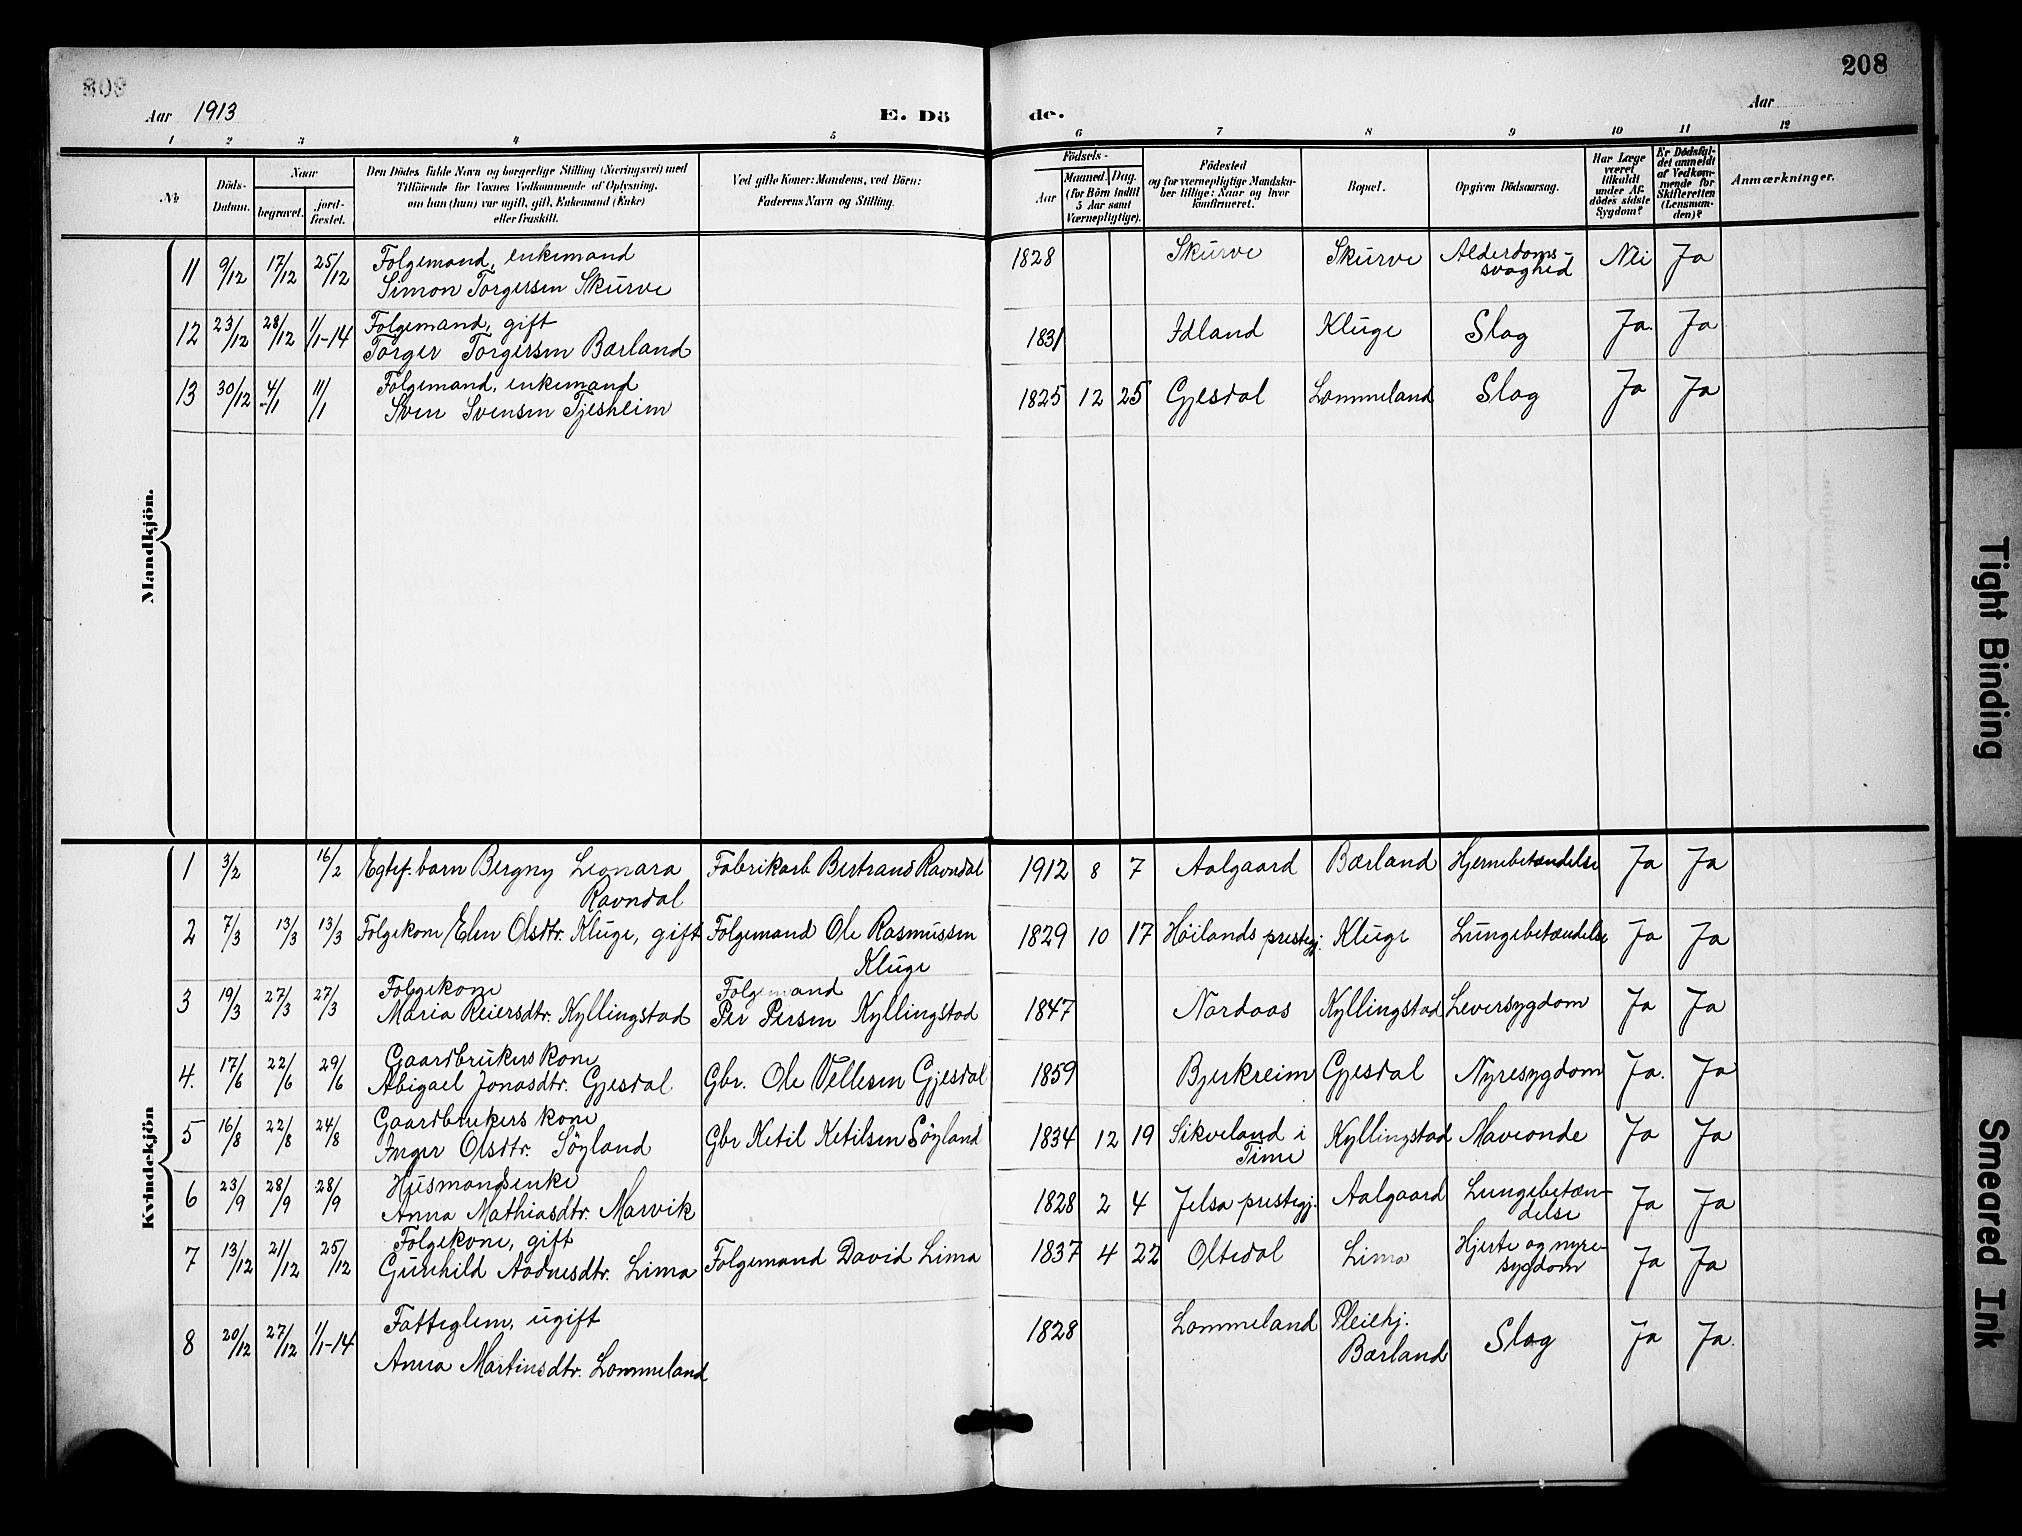 208
Aar 1913
E. Dö de.
Aar
1 2 3 4 5 6 7 8 9 10 11 12
No
Döds-
Datum.
Naar
begravet.
jord-
fæstet.
Den Dödes fulde Navn og borgerlige Stilling (Næringsvei) med
Tilföiende for Voxnes Vedkommende af Oplysning,
om han (hun) var ugift, gift, Enkemand (Enke)
eller fraskilt.
Ved gifte Koner: Mandens, ved Börn:
Faderens Navn og Stilling.
Födsels-
Aar
Maaned. Dag.
(for Börn indtil
5 Aar samt
Værnepligtige).
Födested
og for værnepligtige Mandska-
ber tillige: Naar og hvor
konfirmeret.
Bopæl.
Opgiven Dödsaarsag.
Har Læge
været
tilkaldt
under Af-
dödes sidste
Sygdom?
Er Dödsfal-
det anmeldt
af Vedkom-
mende for
Skifteretten
(Lensman-
den)?
Anmærkninger.
Mandkjön.
11 9/12 17/12 25/12 Folgemand, enkemand
Simon Torgersen Skurve
1828 Skurve Skurve Alderdoms-
svaghed
Nei Ja
12 23/12 28/12 1/1-14 Folgemand, gift
Torger Torgersen Bærland
1831 Idland Kluge Slag Ja. Ja
13 30/12 4/1 11/1 Folgemand, enkemand
Sven Svensen Tjesheim
1825 12 25 Gjesdal Lommeland Slag Ja Ja
Kvindekjön
1 3/2 16/2 Egtef. barn Bergny Leonara
Ravndal
Fabrikarb Bertrans Ravndal 1912 8 7 Aalgaard Bærland Hjernebetændelse Ja Ja
2 7/3 13/3 13/3 Folgekone Elen Olsdtr. Kluge, gift Folgemand Ole Rasmussen
Kluge
1829 10 17 Höilands prestegj. Kluge Lungebetændelse Ja Ja
3 19/3 27/3 27/3 Folgekone
Maria Reiersdtr. Kyllingstad
Folgemand
Per Persen Kyllingstad
1847 Nordaas Kyllingstad Leversygdom Ja Ja
4. 17/6 22/6 29/6 Gaardbrukers kone
Abigael Jonasdtr. Gjesdal
Gbr. Ole Vellesen Gjesdal 1859 Bjerkreim Gjesdal Nyresygdom Ja. Ja
5 16/8 22/8 24/8 Gaardbrukers kone
Inger Olsdtr. Söyland
Gbr Ketil Ketilsen Söyland 1834 12 19 Sikveland i
Time
Kyllingstad Maveonde Ja Ja
6 23/9 28/9 28/9 Husmandsenke
Anna Mathiasdtr. Marvik
1828 2 4 Jelsa prestegj. Aalgaard Lungebetæn-
delse
Ja Ja
7 13/12 21/12 25/12 Folgekone, gift
Gunhild Aadnesdtr. Lima
Folgemand David Lima 1837 4 22 Oltedal Lima Hjerte og nyre-
sygdom
Ja Ja
8 20/12 27/12 1/1-14 Fatteglem, ugift
Anna Martinsdtr. Lommeland
1828 Lommeland Pleiehj.
Bærland
Slag Ja Ja.
Tight Binding
Smeared Ink